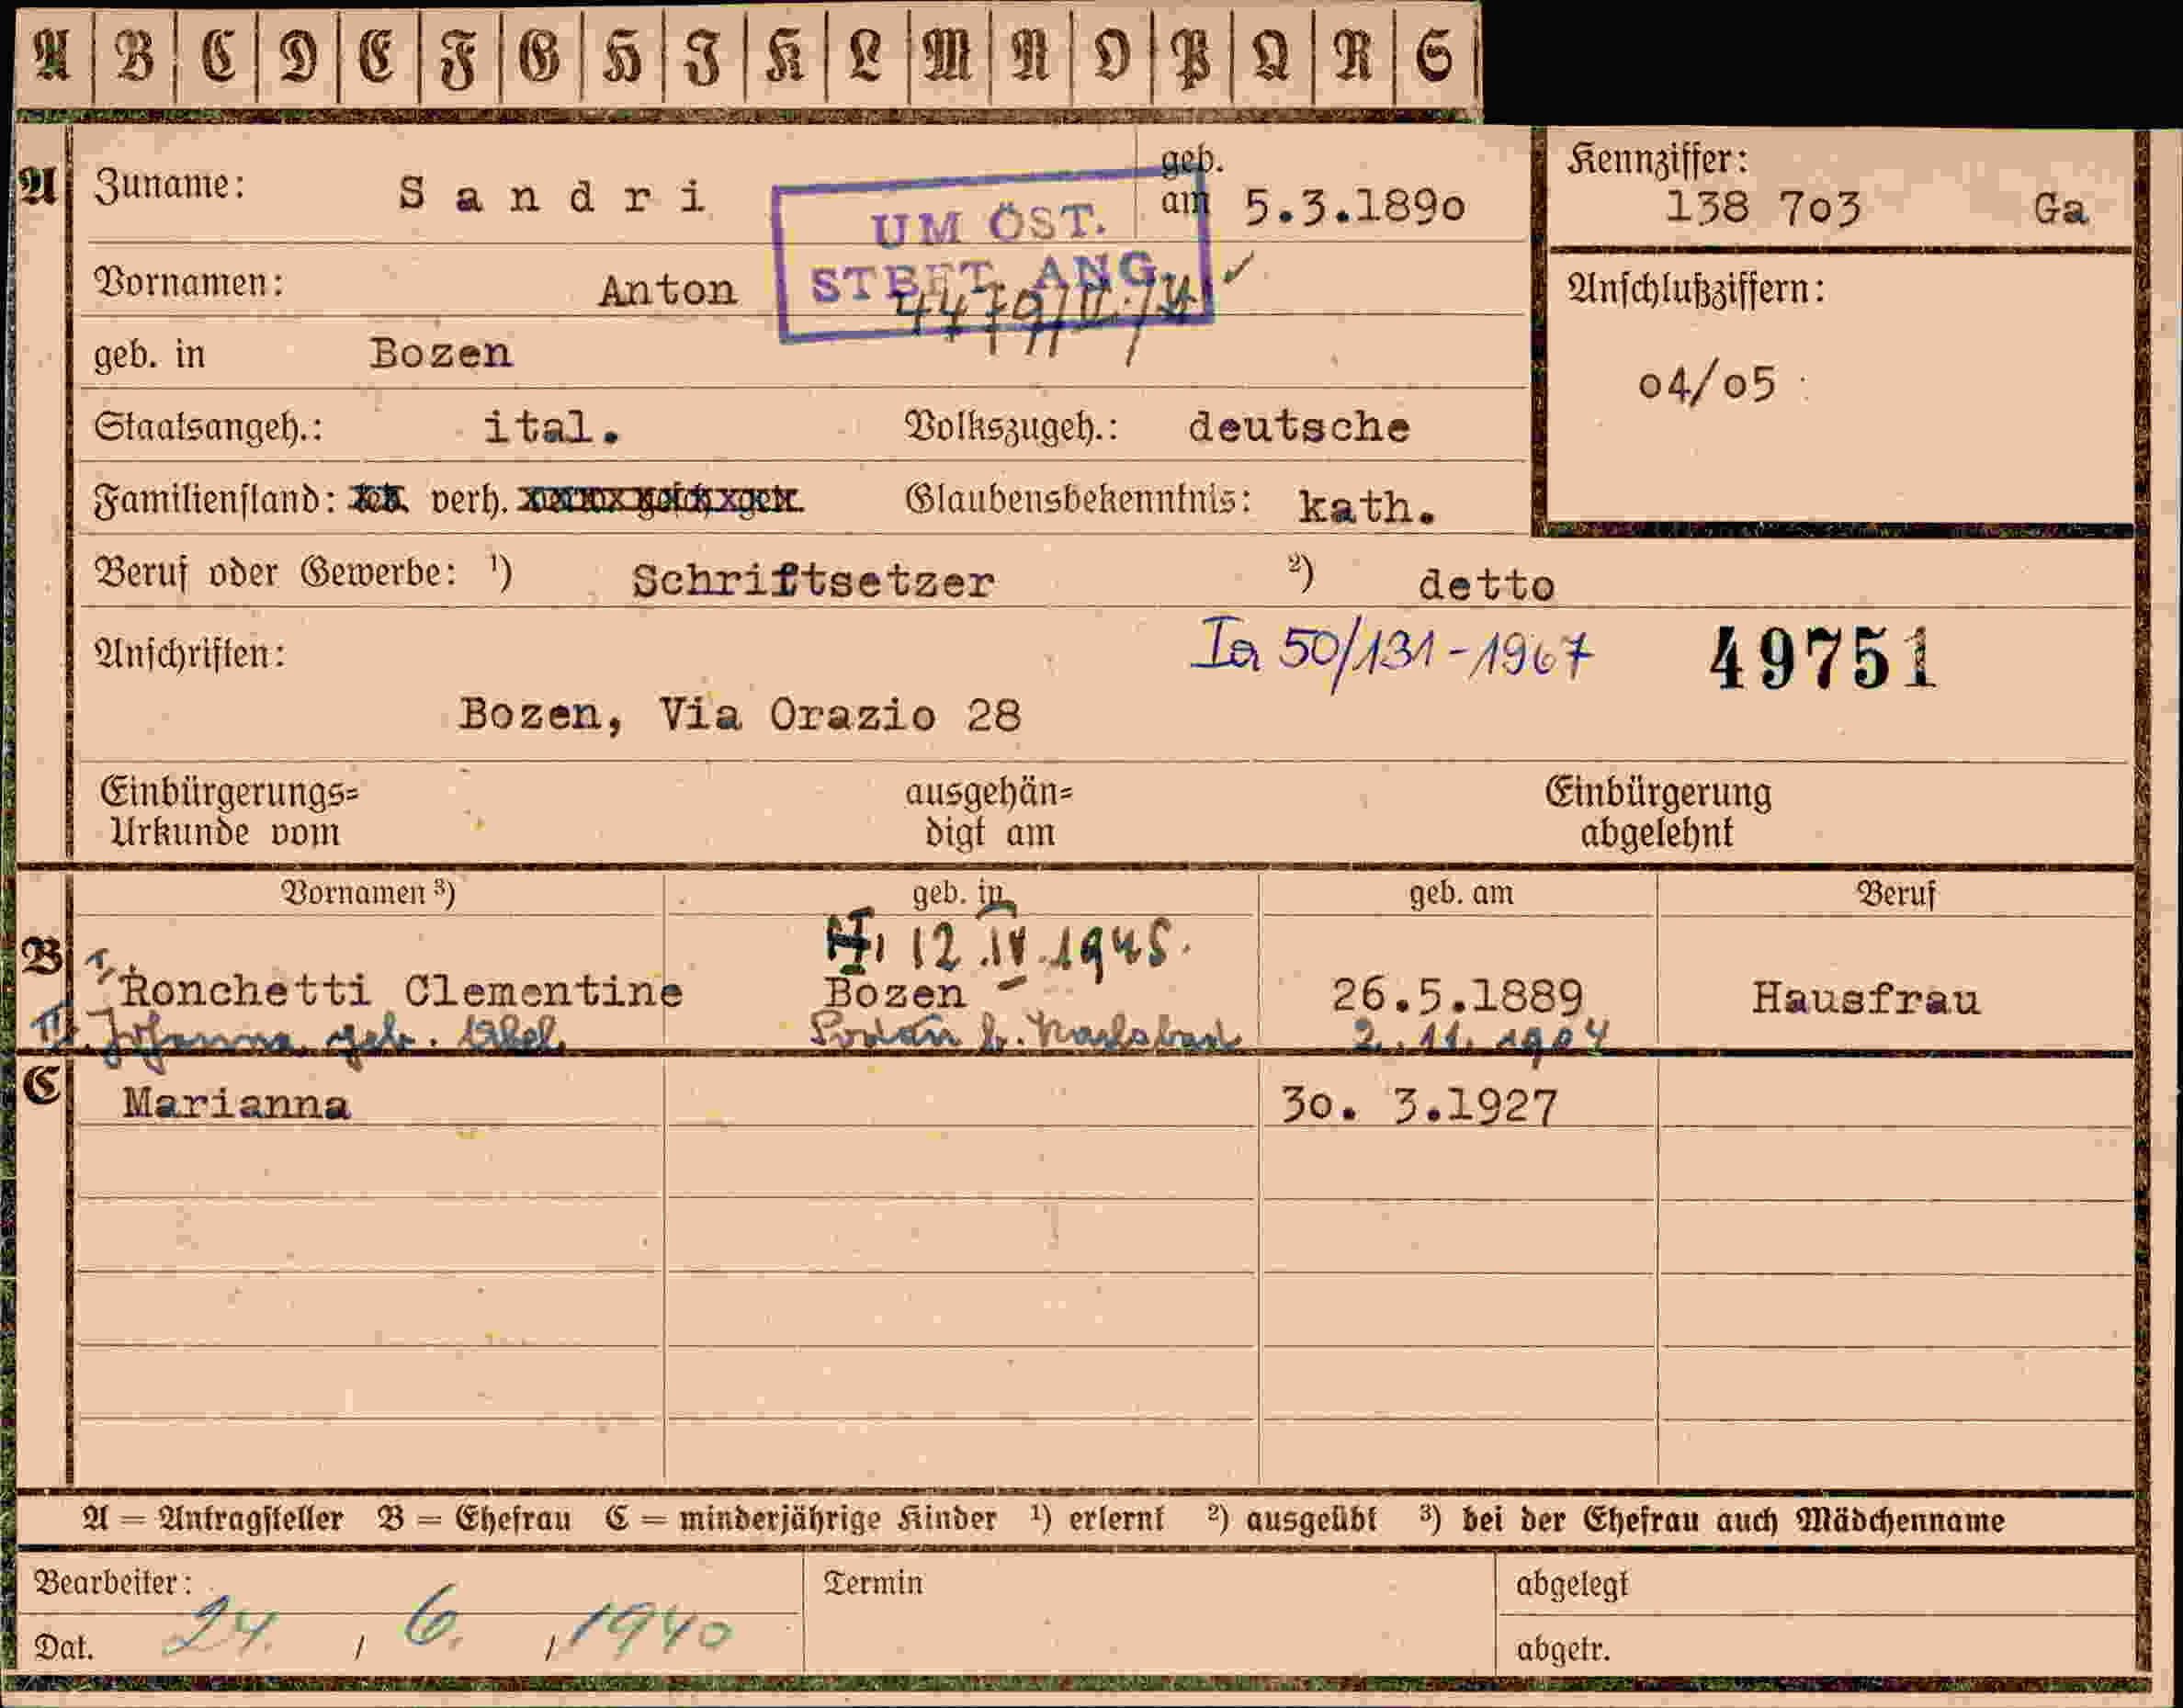 A B C D E F G H I K L M N O P Q R S
A Zuname: Sandri geb. am 5.3.1890
Kennziffer: 138 703 Ga
UM ÖST.
STBET. ANG.
Vornamen: Anton
Anschlußziffern:
geb. in Bozen
04/05
Staatsangeh.: ital. Volkszugeh.: deutsche
Familienstand: verh. Glaubensbekenntnis: kath.
Beruf oder Gewerbe: ¹) Schriftsetzer ²) detto
Anschriften: Ia 50/131-1967 49751
Bozen, Via Orazio 28
Einbürgerungs= ausgehän= Einbürgerung
Urkunde vom digt am abgelehnt
Vornamen ³) geb. in geb. am Beruf
12.IV.1945.
B I. Ronchetti Clementine Bozen 26.5.1889 Hausfrau
II. Johanna geb. b. Karlsbad 2.11.1904
C Marianna 30. 3.1927
A = Antragsteller B = Ehefrau C = minderjährige Kinder ¹) erlernt ²) ausgeübt ³) bei der Ehefrau auch Mädchenname
Bearbeiter: Termin abgelegt
Dat. 24. / 6. / 1940 abgetr.